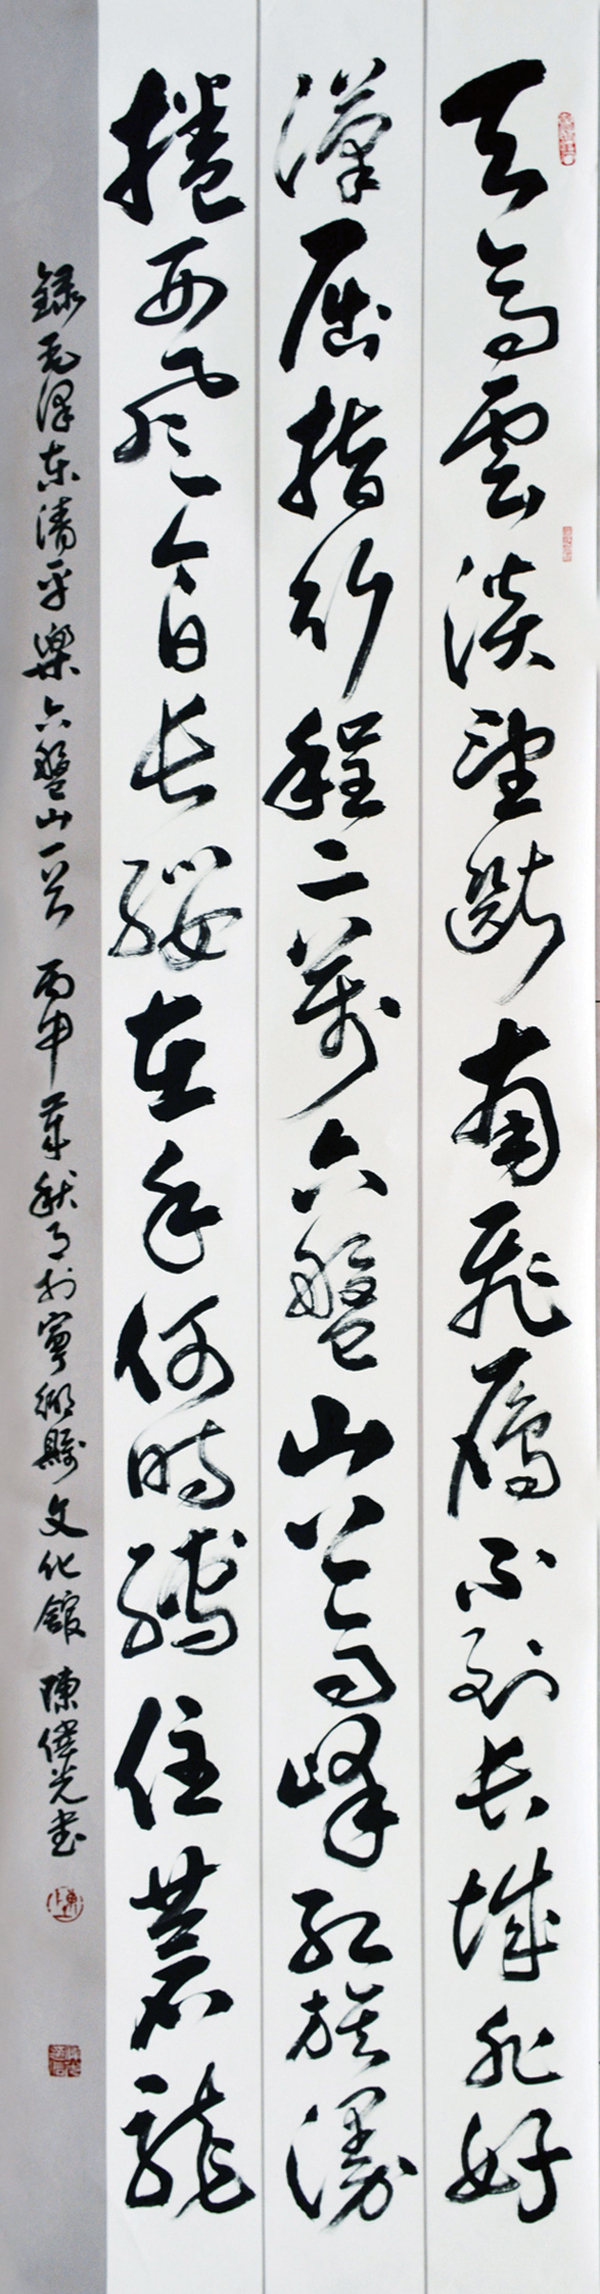 天高雲淡望斷南飛雁不到长城非好
漢屈指行程二萬六盤山上高峰红旗漫
捲西風今日长纓在手何時縛住蒼龍
録毛泽东清平樂六盤山一首 丙申年秋月於寧鄉縣文化館 陳偉光书